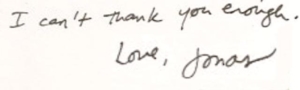 I can't thank you enough.
Love, Jonas